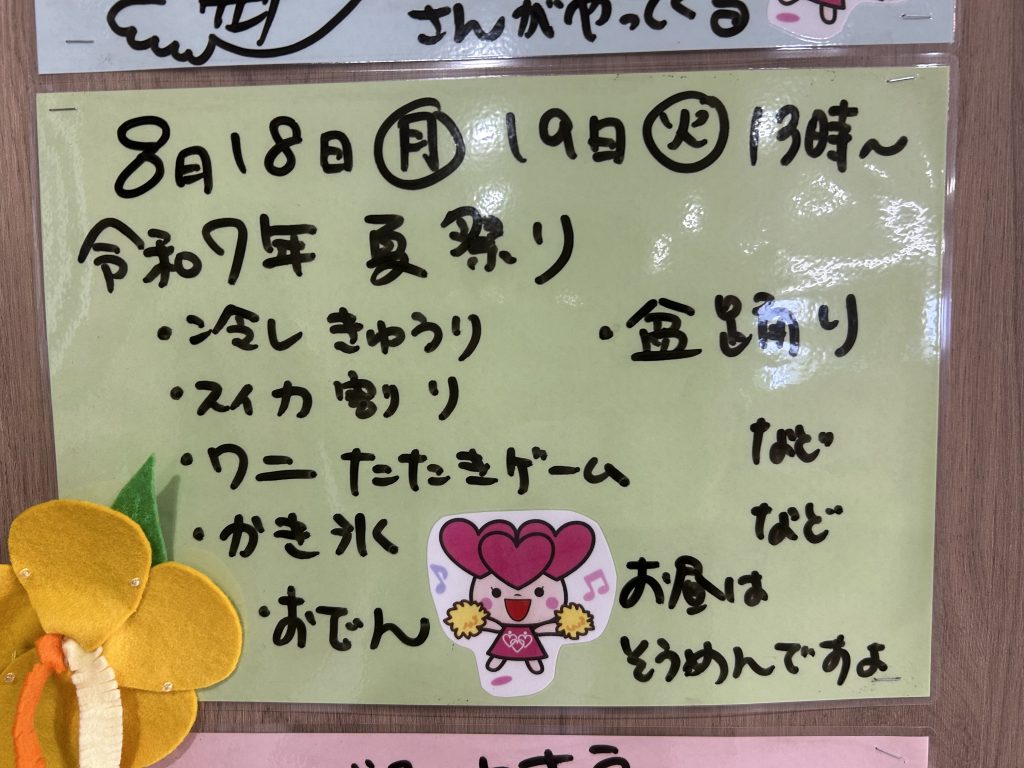 さんがやってくる
8月18日㊊ 19日㊋ 13時〜
令和7年 夏祭り
・冷しきゅうり
・スイカ割り
・ワニたたきゲーム
・かき氷
・おでん
・盆踊り
など
など
お昼は
そうめんですよ